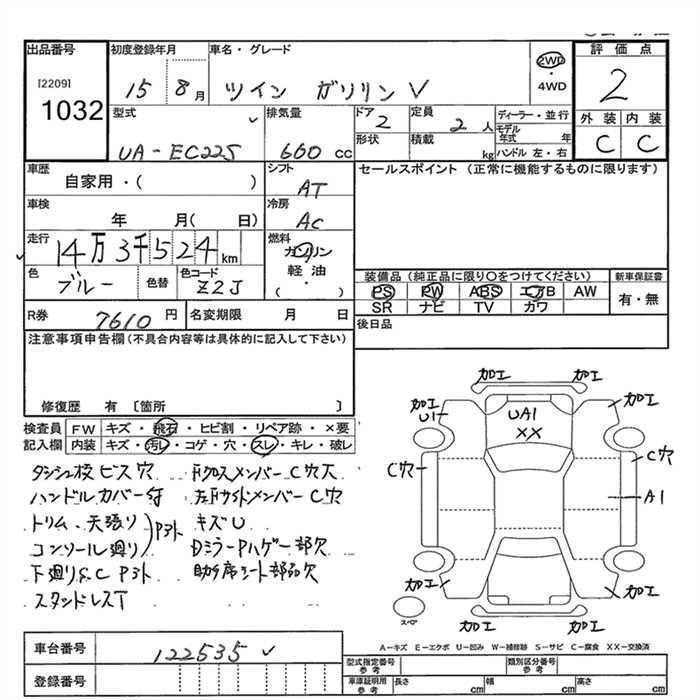 出品番号
[2209]
1032
初度登録年月
15 8月
車名・グレード
ツイン ガソリン V
2WD
・
4WD
評価点
2
外装 内装
C C
型式
UA-EC22S
排気量
660 cc
ドア
2
形状
定員
2 人
積載
kg
ディーラー・並行
モデル年式 年
ハンドル 左・右
車歴
自家用・( )
シフト
AT
セールスポイント (正常に機能するものに限ります)
車検
年 月(日)
冷房
AC
走行
14万3千524km
燃料
ガソリン
軽油・
( )
色
ブルー
色替
色コード
Z2J
装備品(純正品に限り〇をつけてください)
PS PW ABS エアB AW
SR ナビ TV カワ
新車保証書
有・無
R券
7610円
名変期限 月 日
後日品
注意事項申告欄(不具合内容等は具体的に記入して下さい)
修復歴 有 〔箇所 〕
検査員記入欄
FW キズ・飛石・ヒビ割・リペア跡・×要
内装 キズ・汚レ・コゲ・穴・スレ・キレ・破レ
ハンドルカバー付
トリム・天張り
コンソール廻り
下廻りS.C P外
キズU
助手席シート部品欠
加工 加工
加工 加工
U1
UA1
XX
C穴 C穴
A1
加工 加工
加工 加工
スペア
A-キズ E-エクボ U-凹み W-補修跡 S-サビ C-腐食 XX-交換済
車台番号
122535
登録番号
型式指定番号参考
類別区分番号参考
車庫証明用参考
長さ cm
幅 cm
高さ cm